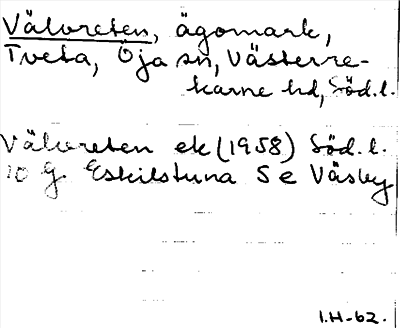 Välvreten, ägomark,
Tveta, Öja sn, Västerre-
karne hd, Söd.l.
Välvreten ek (1958) Söd.l.
10 G. Eskilstuna S e Väsby
I.H-62.